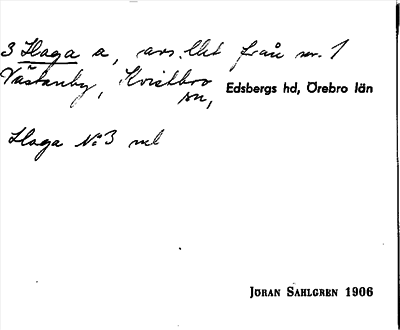 3 Haga a, avs. lht från nr. 1
Västanby, Kvistbro
sn, Edsbergs hd, Örebro län
Haga No 3 ml
JÖRAN SAHLGREN 1906